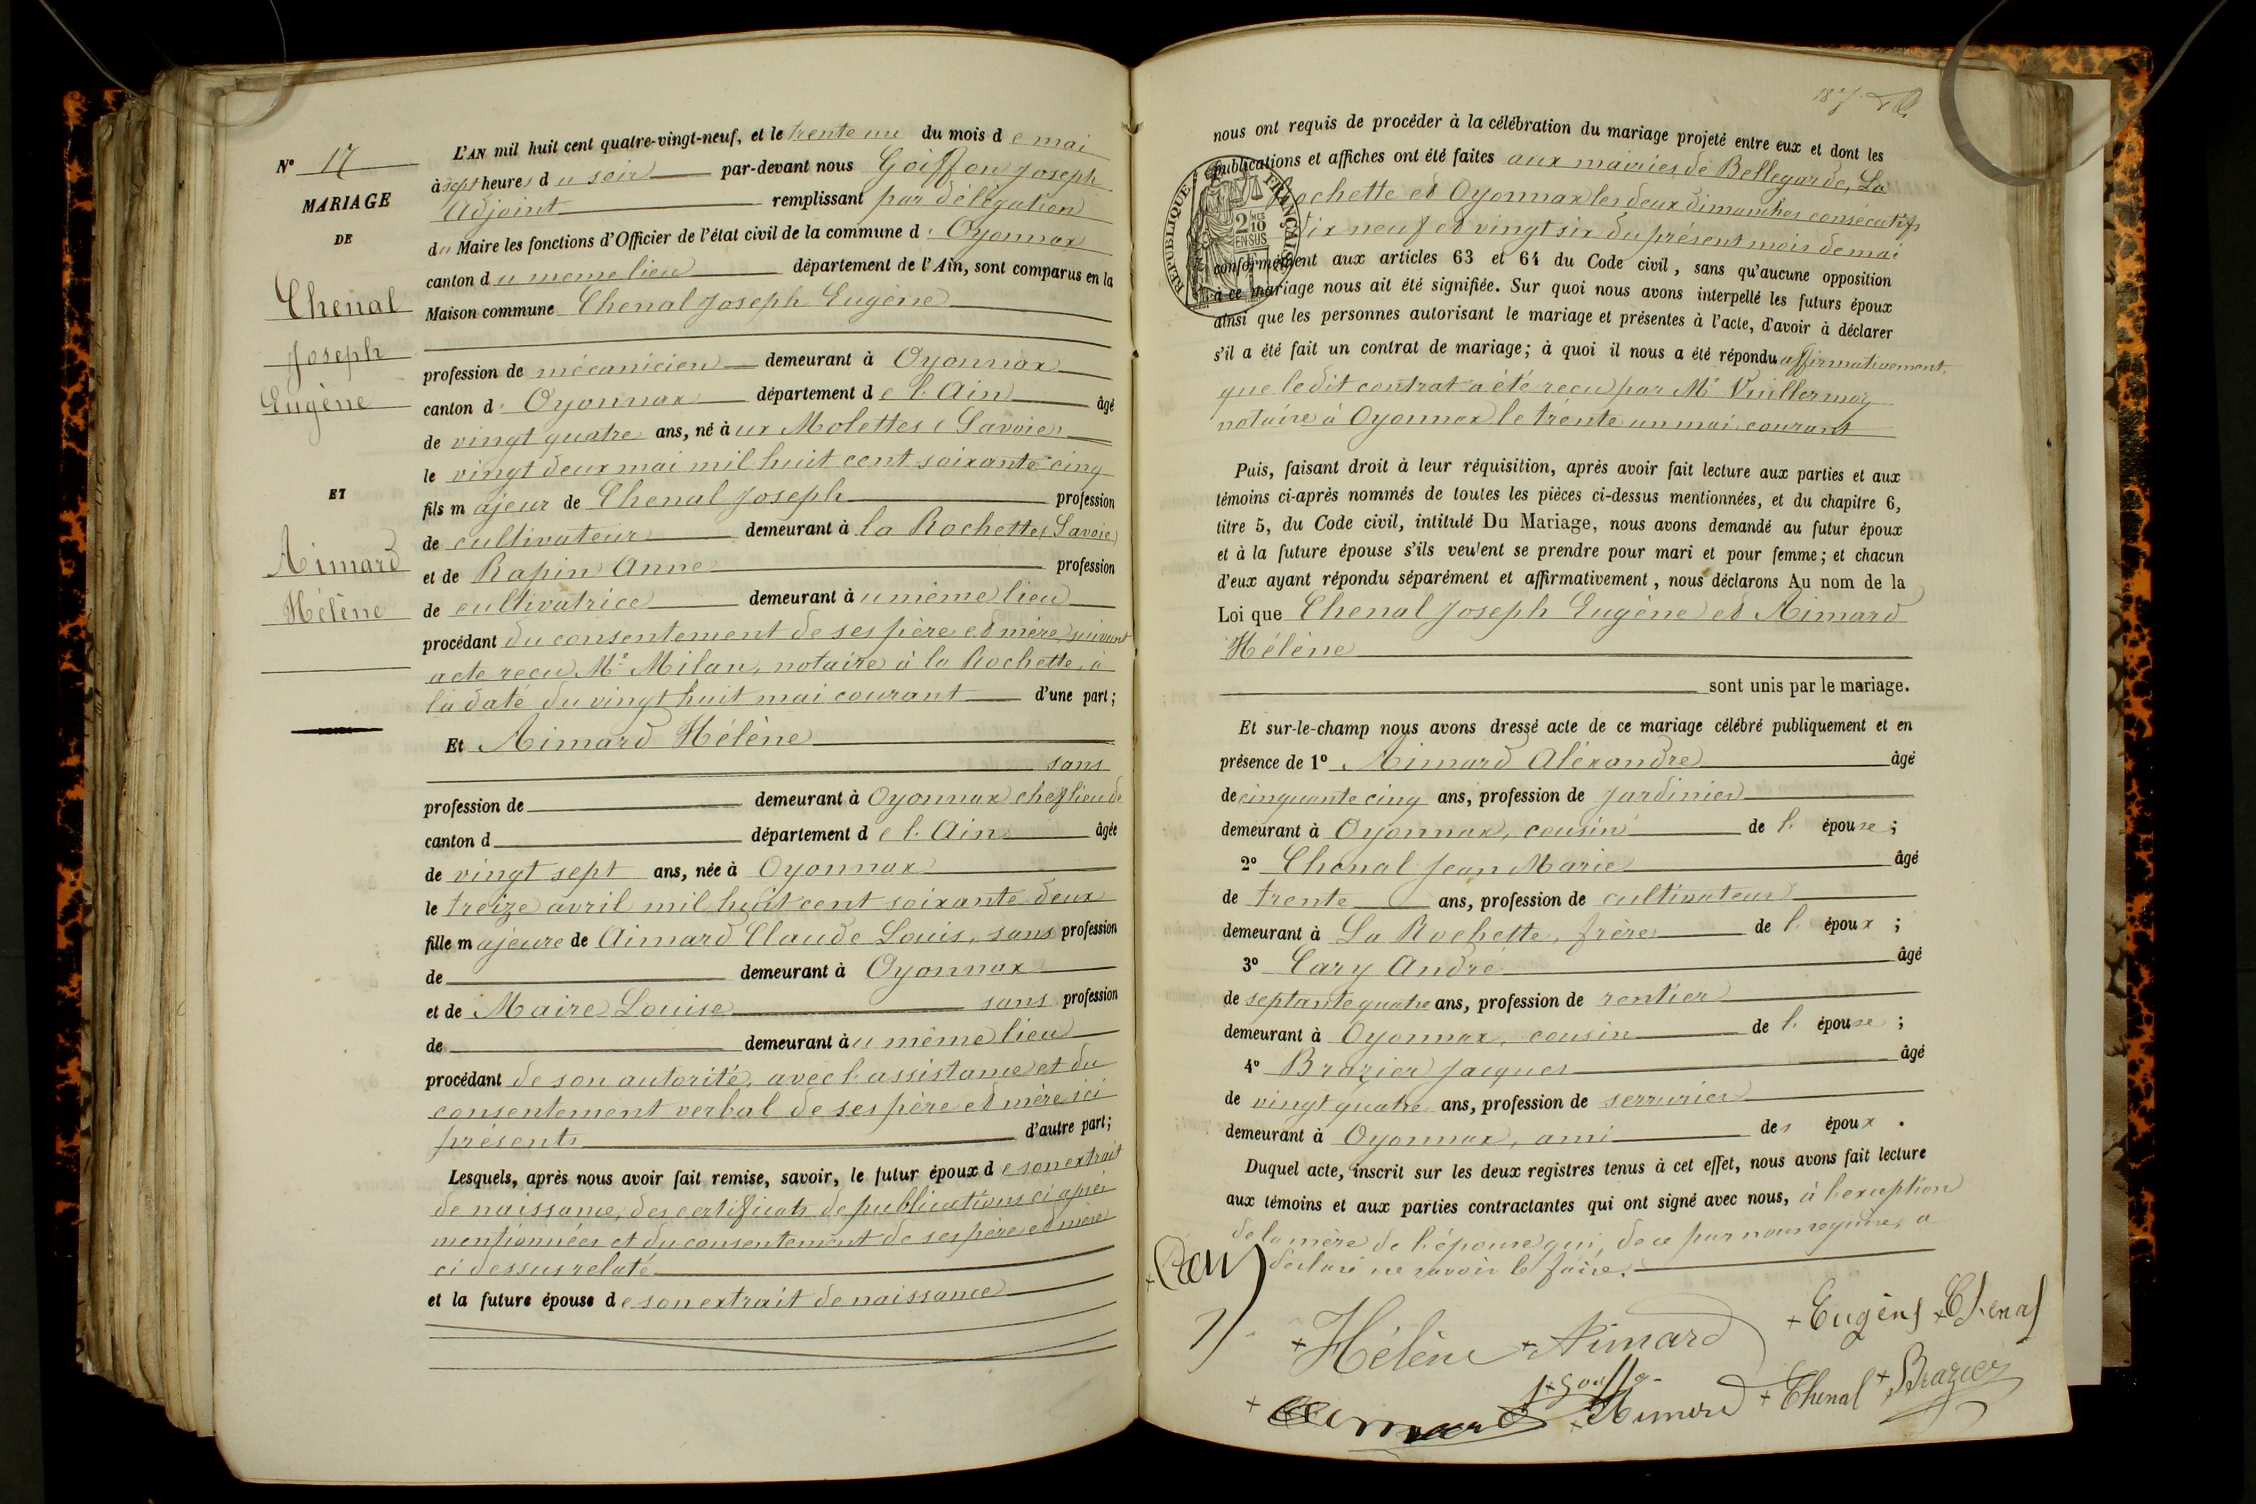 N° 17
MARIAGE
DE
Chenal
Joseph
Eugène
ET
Aimard
Hélène
L'AN mil huit cent quatre-vingt-neuf, et le trente un du mois de mai
à sept heures du soir par-devant nous Goiffon Joseph
Adjoint remplissant par délégation
du Maire les fonctions d'Officier de l'état civil de la commune d' Oyonnax
canton du meme lieu département de l'Ain, sont comparus en la
Maison commune Chenal Joseph Eugène
profession de mécanicien demeurant à Oyonnax
canton d' Oyonnax département de l'Ain âgé
de vingt quatre ans, né aux Molettes (Savoie)
le vingt deux mai mil huit cent soixante cinq
fils majeur de Chenal Joseph profession
de cultivateur demeurant à la Rochette (Savoie)
et de Rapin Anne profession
de cultivatrice demeurant au même lieu
procédant du consentement de ses père et mère suivant
acte recu Me Milan, notaire à la Rochette, à
la date du vingt huit mai courant d'une part;
Et Aimard Hélène
sans
profession de demeurant à Oyonnax chef lieu de
canton d département de l'Ain âgée
de vingt sept ans, née à Oyonnax
le treize avril mil huit cent soixante deux
fille majeure de Aimard Claude Louis, sans profession
de demeurant à Oyonnax
et de Maire Louise sans profession
de demeurant au même lieu
procédant de son autorité, avec l'assistance et du
consentement verbal de ses père et mère ici
présents d'autre part;
Lesquels, après nous avoir fait remise, savoir, le futur époux de son extrait
de naissance, des certificats de publications ci après
mentionnées et du consentement de ses père et mère
ci dessus relaté
et la future épouse de son extrait de naissance
187
nous ont requis de procéder à la célébration du mariage projeté entre eux et dont les
publications et affiches ont été faites aux mairies de Bellegarde, La
Rochette et Oyonnax les deux dimanches consécutifs
dix neuf et vingt six du présent mois de mai
conformément aux articles 63 et 64 du Code civil, sans qu'aucune opposition
à ce mariage nous ait été signifiée. Sur quoi nous avons interpellé les futurs époux
ainsi que les personnes autorisant le mariage et présentes à l'acte, d'avoir à déclarer
s'il a été fait un contrat de mariage; à quoi il nous a été répondu affirmativement,
que le dit contrat a été recu par Me Vuillermoz
notaire à Oyonnax le trente un mai courant
RÉPUBLIQUE FRANÇAISE
2 10MES
EN SUS
Puis, faisant droit à leur réquisition, après avoir fait lecture aux parties et aux
témoins ci-après nommés de toutes les pièces ci-dessus mentionnées, et du chapitre 6,
titre 5, du Code civil, intitulé Du Mariage, nous avons demandé au futur époux
et à la future épouse s'ils veulent se prendre pour mari et pour femme; et chacun
d'eux ayant répondu séparément et affirmativement, nous déclarons Au nom de la
Loi que Chenal Joseph Eugène et Aimard
Hélène
sont unis par le mariage.
Et sur-le-champ nous avons dressé acte de ce mariage célébré publiquement et en
présence de 1° Aimard Aléxandre âgé
de cinquante cinq ans, profession de jardinier
demeurant à Oyonnax, cousin de l' épouse;
2° Chenal Jean Marie âgé
de trente ans, profession de cultivateur
demeurant à La Rochette, frère de l' époux;
3° Cary André âgé
de septante quatre ans, profession de rentier
demeurant à Oyonnax, cousin de l' épouse;
4° Brazier Jacques âgé
de vingt quatre ans, profession de serrurier
demeurant à Oyonnax, ami des époux.
Duquel acte, inscrit sur les deux registres tenus à cet effet, nous avons fait lecture
aux témoins et aux parties contractantes qui ont signé avec nous, à l'exception
de la mère de l'épouse qui, de ce par nous requise, a
declaré ne savoir le faire.
Hélène Aimard
Eugène Chenal
Aimard
Aimard
Chenal
Brazier